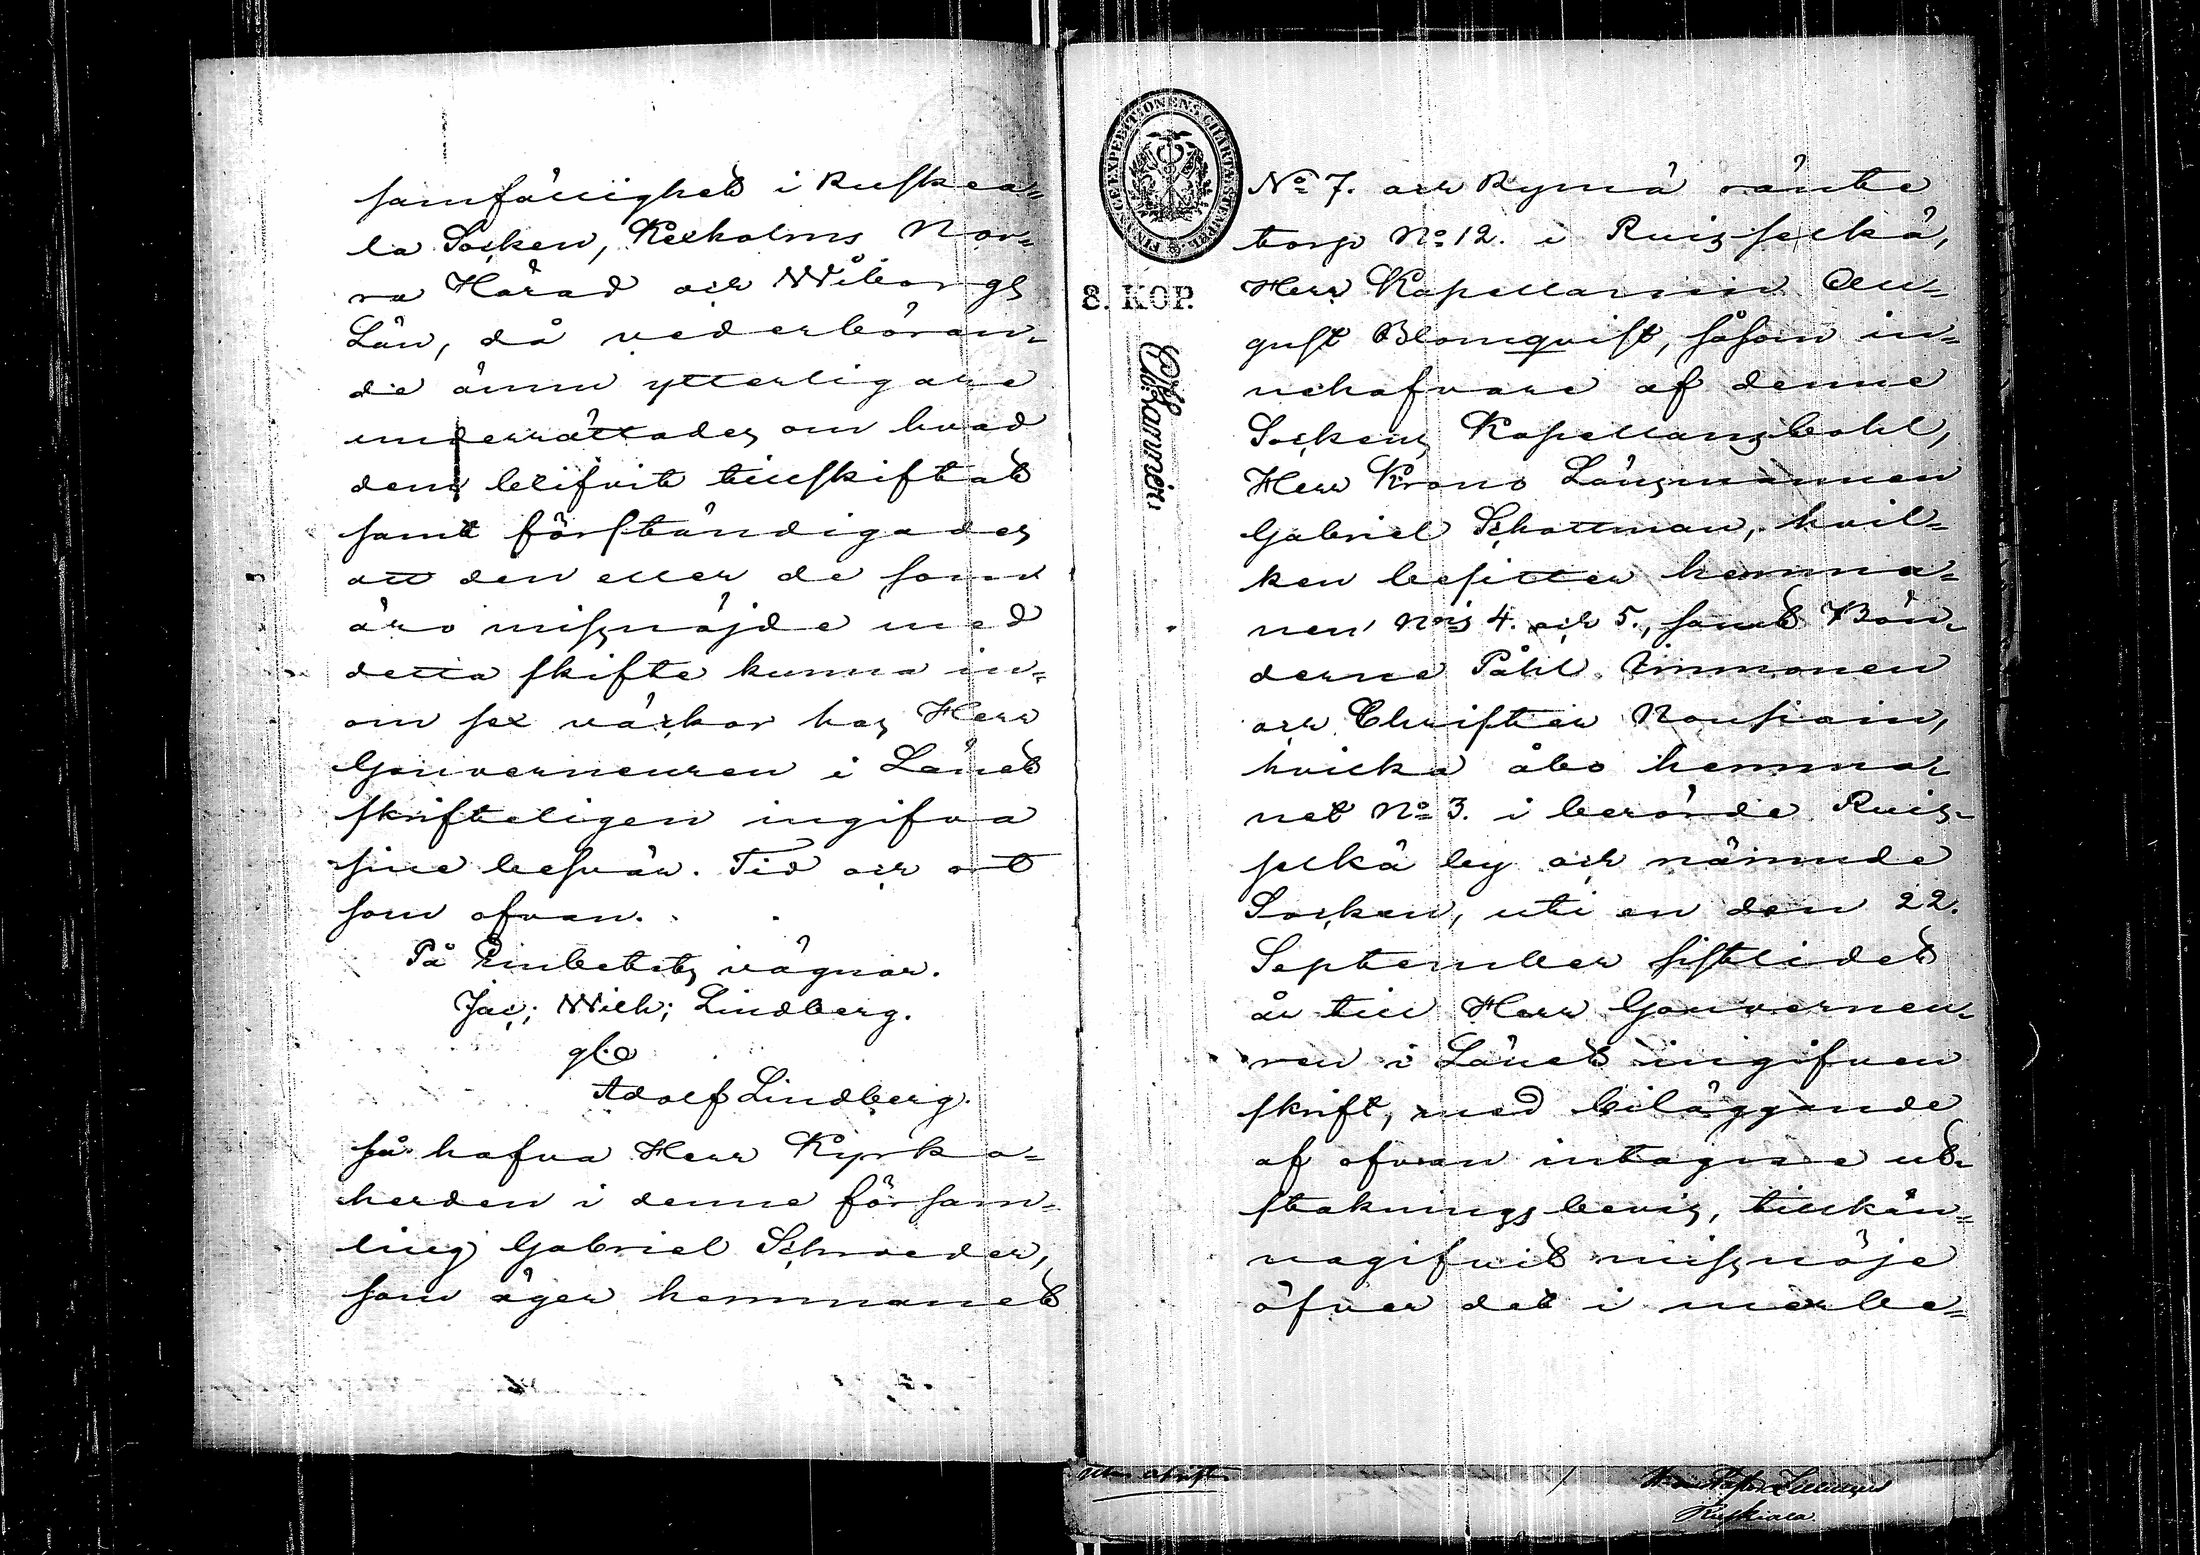 samfällighet i Ruskea-
la Socken, Kexholms Nor-
ra Härad och Wiborgs
Län, då vederböran-
de ännu ytterligare
underrättades om hvad
dem blifvit tillskiftat
samt förständigades
att den eller de som
äro missnöjde med
detta skifte kunna in-
om sex väckor hos Herr
Gouverneuren i Länet
skrifteligen ingifva
sine besvär. Tid och ort
som ofvan.
På Embetets vägnar.
Jac; Wilh; Lindberg.
Adolf Lindberg.
så hafva Herr Kyrko-
herden i denne församm-
ling Gabriel Schroeder,
som äger hemmanet
FINANCE EXPEDITIONENS CHARTÆ STEMPEL
8. KOP.
No 7. och Rymä ränte
torp No 12. i Ruisselkä,
Herr Kapellanen Au-
gust Blomqvist, såsom in-
nehafvare af denne
Sockens Kapellansbohl,
Herr Krono Länsmannen
Gabriel Schottman, hvil-
ken besitter hemma-
nen Nris 4. och 5., samt Bön-
derne Påhl Immonen
och Christer Nousiain,
hvilka åbo hemma-
net No 3. i berörde Ruis-
selkä by och nämnde
Socken, uti en den 22.
September sistlidet
år till Herr Gouverneu-
ren i Länet ingifven
skrift, med biläggande
af ofvan intagne ut-
stakningsbevis, tillkän-
nagifvit missnöje
öfver det i merbe-
Ruskiala